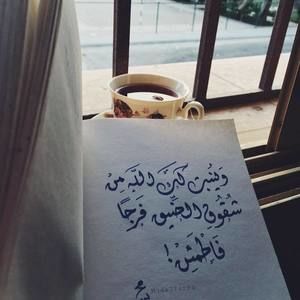 وَيُنبِت لَكَ اللَّهُ مِنْ
شُقُوقِ الضِّيقِ فَرَجًا
فَاطْمَئِنْ!